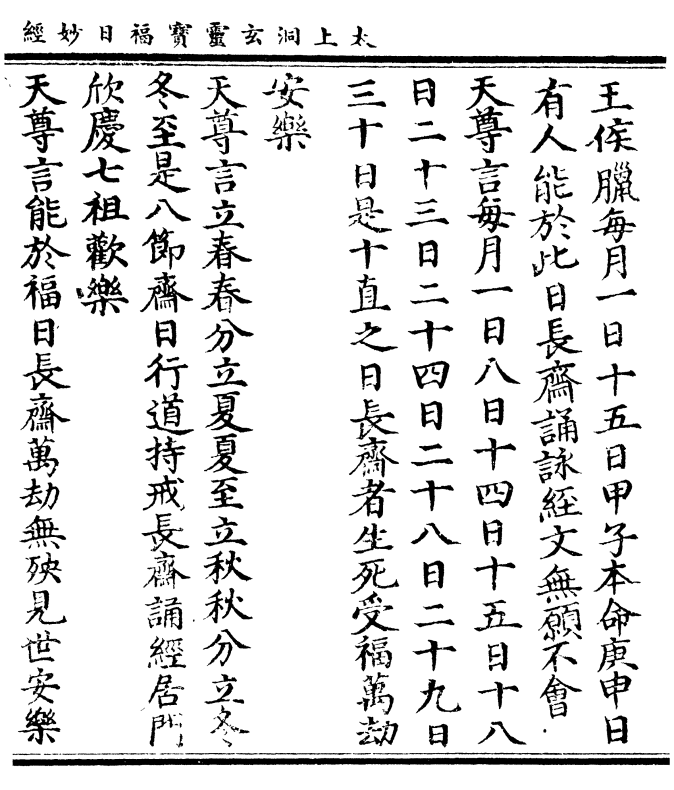 太上洞玄靈寶福日妙經
王侯臘每月一日十五日甲子本命庚申日
有人能於此日長齋誦詠經文無願不會
天尊言每月一日八日十四日十五日十八
日二十三日二十四日二十八日二十九日
三十日是十直之日長齋者生死受福萬劫
安樂
天尊言立春春分立夏夏至立秋秋分立冬
冬至是八節齋日行道持戒長齋誦經居門
欣慶七祖歡樂
天尊言能於福日長齋萬劫無殃見世安樂